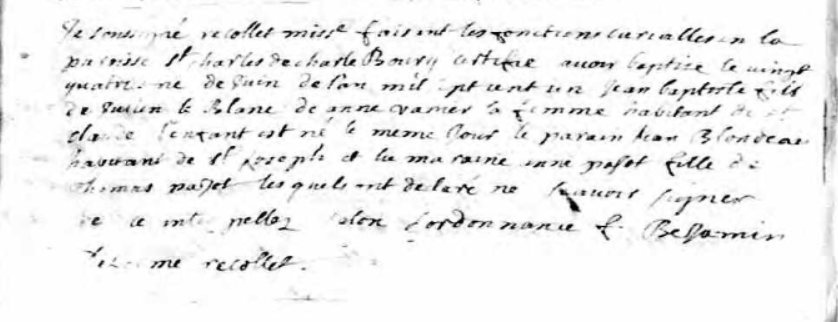 Je soussigné recollet miss.e faisant les fonctions curialles en la
paroisse st charles de charle Bourg certifie avoir baptisé le vingt
quatriesme de Juin de l'an mil sept cent un Jean baptiste fils
de Julien le Blanc de anne vanier sa femme habitant de st
claude l'enfant est né le meme Jour le parain Jean Blondeau
habitant de st Joseph et la maraine anne paset fille de
Thomas paset les quels ont declaré ne scavoir signer
de ce interpellez selon l'ordonnance f. Benjamin
recollet.